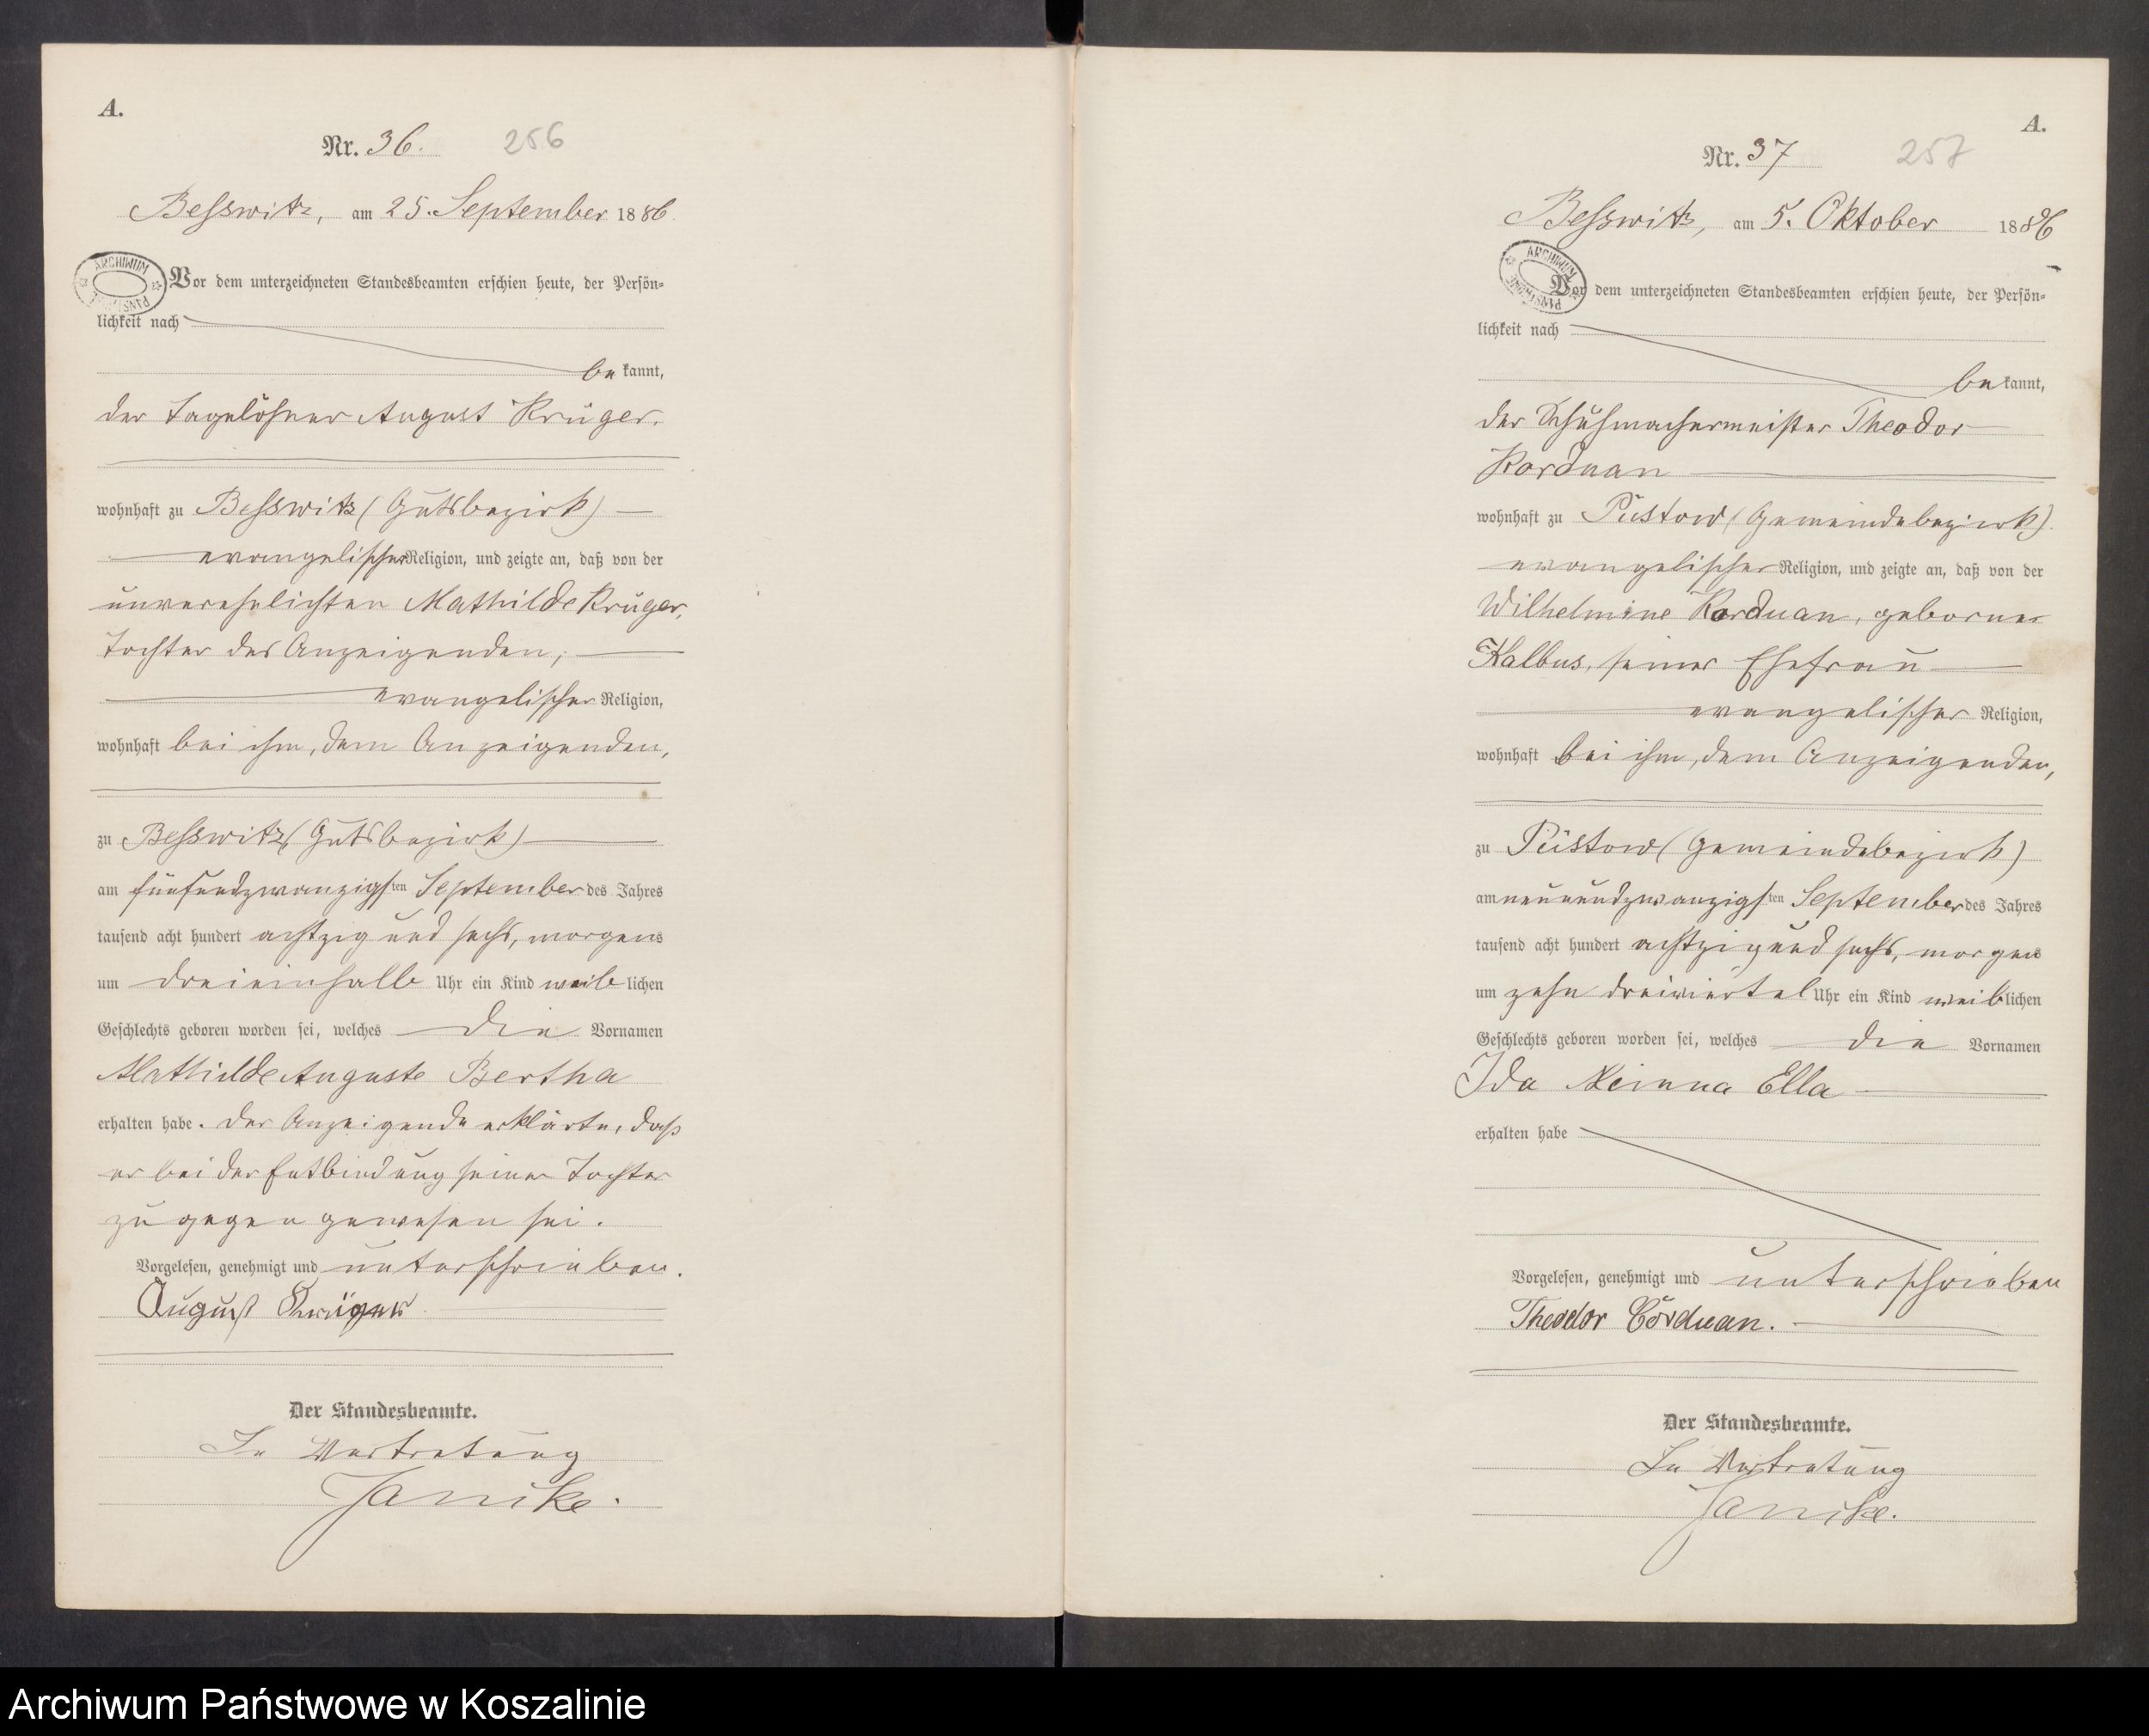 A.
Nr. 36. 256
Besswitz, am 25. September 1886.
ARCHIWUM
Vor dem unterzeichneten Standesbeamten erschien heute, der Persön-
lichkeit nach
be kannt,
der Tagelöhner August Krüger.
wohnhaft zu Besswitz (Gutsbezirk)
evangelischer Religion, und zeigte an, daß von der
unverehelichten Mathilde Krüger,
Tochter des Anzeigenden,
evangelischer Religion,
wohnhaft bei ihm, dem Anzeigenden,
zu Besswitz (Gutsbezirk)
am fünfundzwanzigsten September des Jahres
tausend acht hundert achtzig und sechs, morgens
um dreieinhalb Uhr ein Kind weiblichen
Geschlechts geboren worden sei, welches die Vornamen
Mathilde Auguste Bertha
erhalten habe. Der Anzeigende erklärte, daß
er bei der Entbindung seiner Tochter
zugegen gewesen sei.
Vorgelesen, genehmigt und unterschrieben.
August Krüger
Der Standesbeamte.
In Vertretung
Janike.
A.
Nr. 37 257
Besswitz, am 5. Oktober 1886
ARCHIWUM
Vor dem unterzeichneten Standesbeamten erschien heute, der Persön-
lichkeit nach
be kannt,
der Schuhmachermeister Theodor
Korduan
wohnhaft zu Püstow (Gemeindebezirk)
evangelischer Religion, und zeigte an, daß von der
Wilhelmine Korduan, geborner
Kalbus, seiner Ehefrau
evangelischer Religion,
wohnhaft bei ihm, dem Anzeigenden,
zu Püstow (Gemeindebezirk)
am neunundzwanzigsten September des Jahres
tausend acht hundert achtzig und sechs, morgens
um zehn dreiviertel Uhr ein Kind weiblichen
Geschlechts geboren worden sei, welches die Vornamen
Ida Meinna Ella
erhalten habe
Vorgelesen, genehmigt und unterschrieben
Theodor Corduan.
Der Standesbeamte.
In Vertretung
Janike.
Archiwum Państwowe w Koszalinie